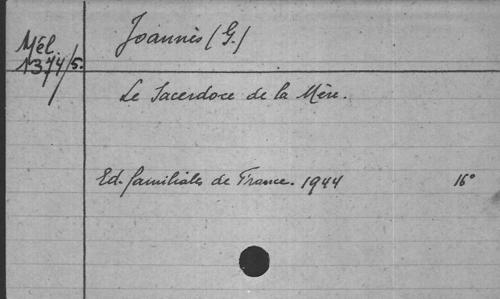 Mél.
1374/5.
Joannès (G.)
Le Sacerdoce de la Mère.
Ed. familiales de France. 1944 16°